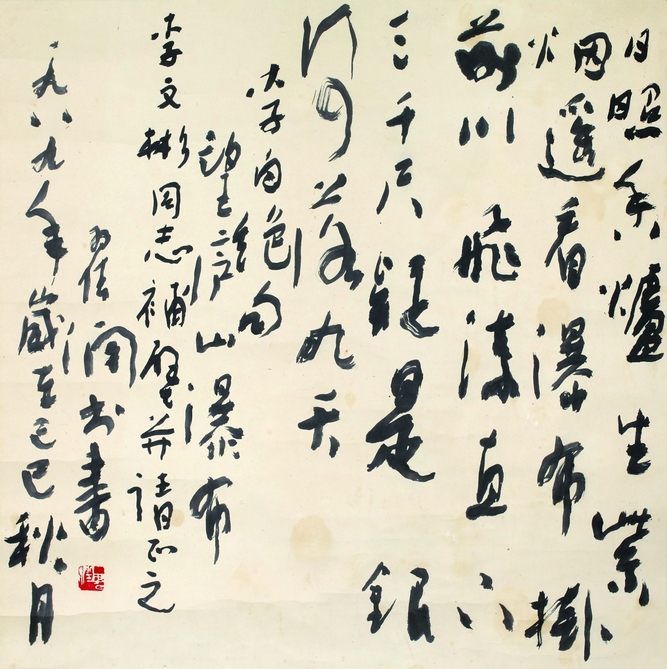 日照香爐生紫
烟遥看瀑布掛
前川飛流直下
三千尺疑是銀
河落九天
李白絶句
望廬山瀑布
李文彬同志補壁并請正之
書
一九八九年歲在己巳秋月